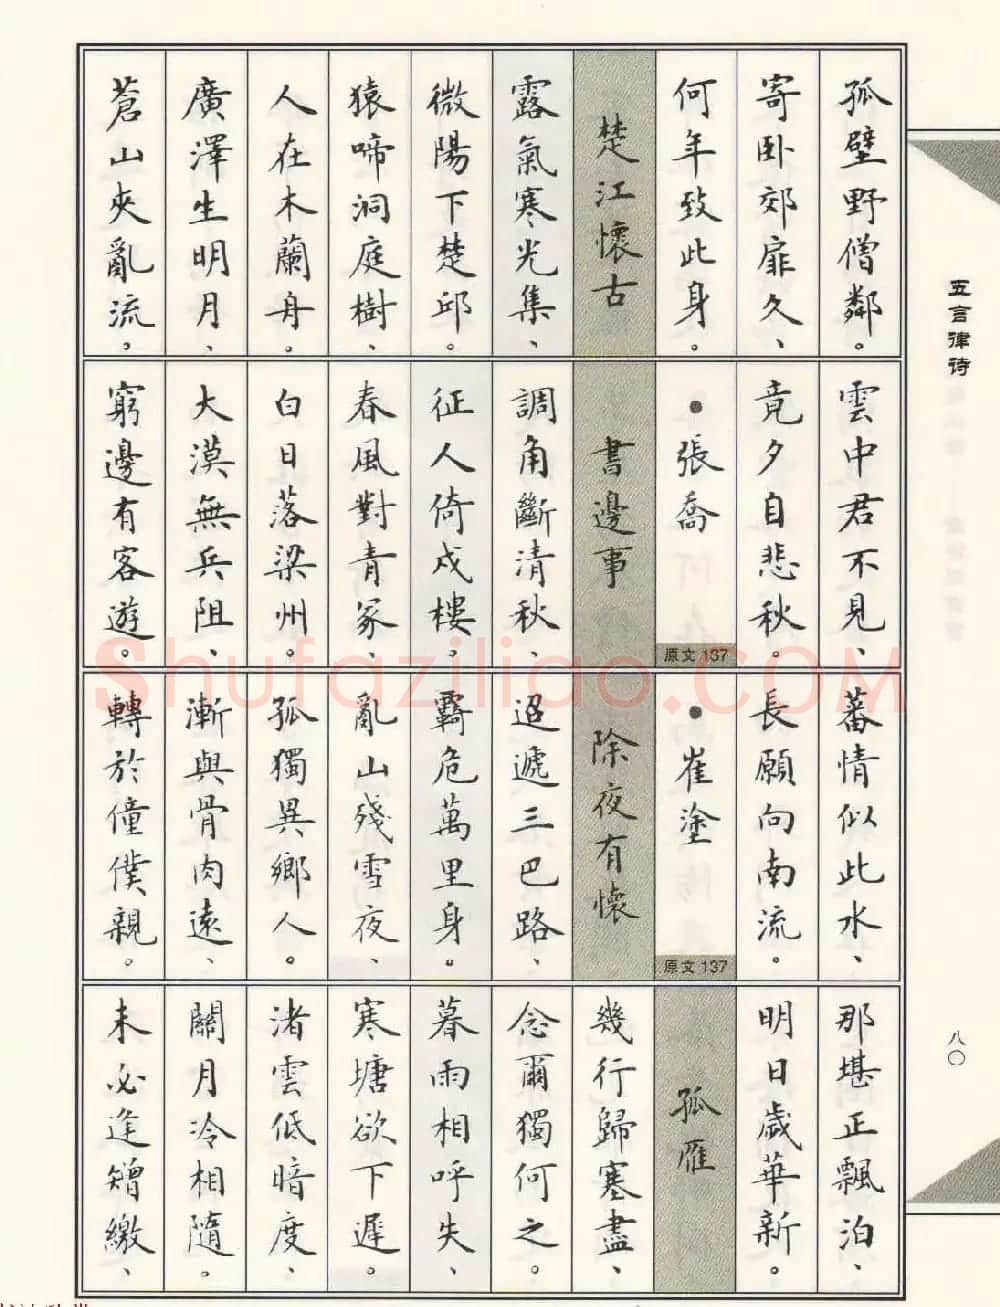 孤壁野僧鄰。
寄卧郊扉久、
何年致此身。
楚江懷古
露氣寒光集、
微陽下楚邱。
猿啼洞庭樹、
人在木蘭舟。
廣澤生明月、
蒼山夾亂流。
雲中君不見、
竟夕自悲秋。
●張喬
原文 137
書邊事
調角斷清秋、
征人倚戍樓。
春風對青冢、
白日落梁州。
大漠無兵阻、
窮邊有客遊。
蕃情似此水、
長願向南流。
●崔塗
原文 137
除夜有懷
迢遞三巴路、
羈危萬里身。
亂山殘雪夜、
孤獨異鄉人。
漸與骨肉遠、
轉於僮僕親。
那堪正飄泊、
明日歲華新。
孤雁
幾行歸塞盡、
念爾獨何之。
暮雨相呼失、
寒塘欲下遲。
渚雲低暗度、
關月冷相隨。
未必逢矰繳、
五言律诗
八〇
Shufaziliao.COM